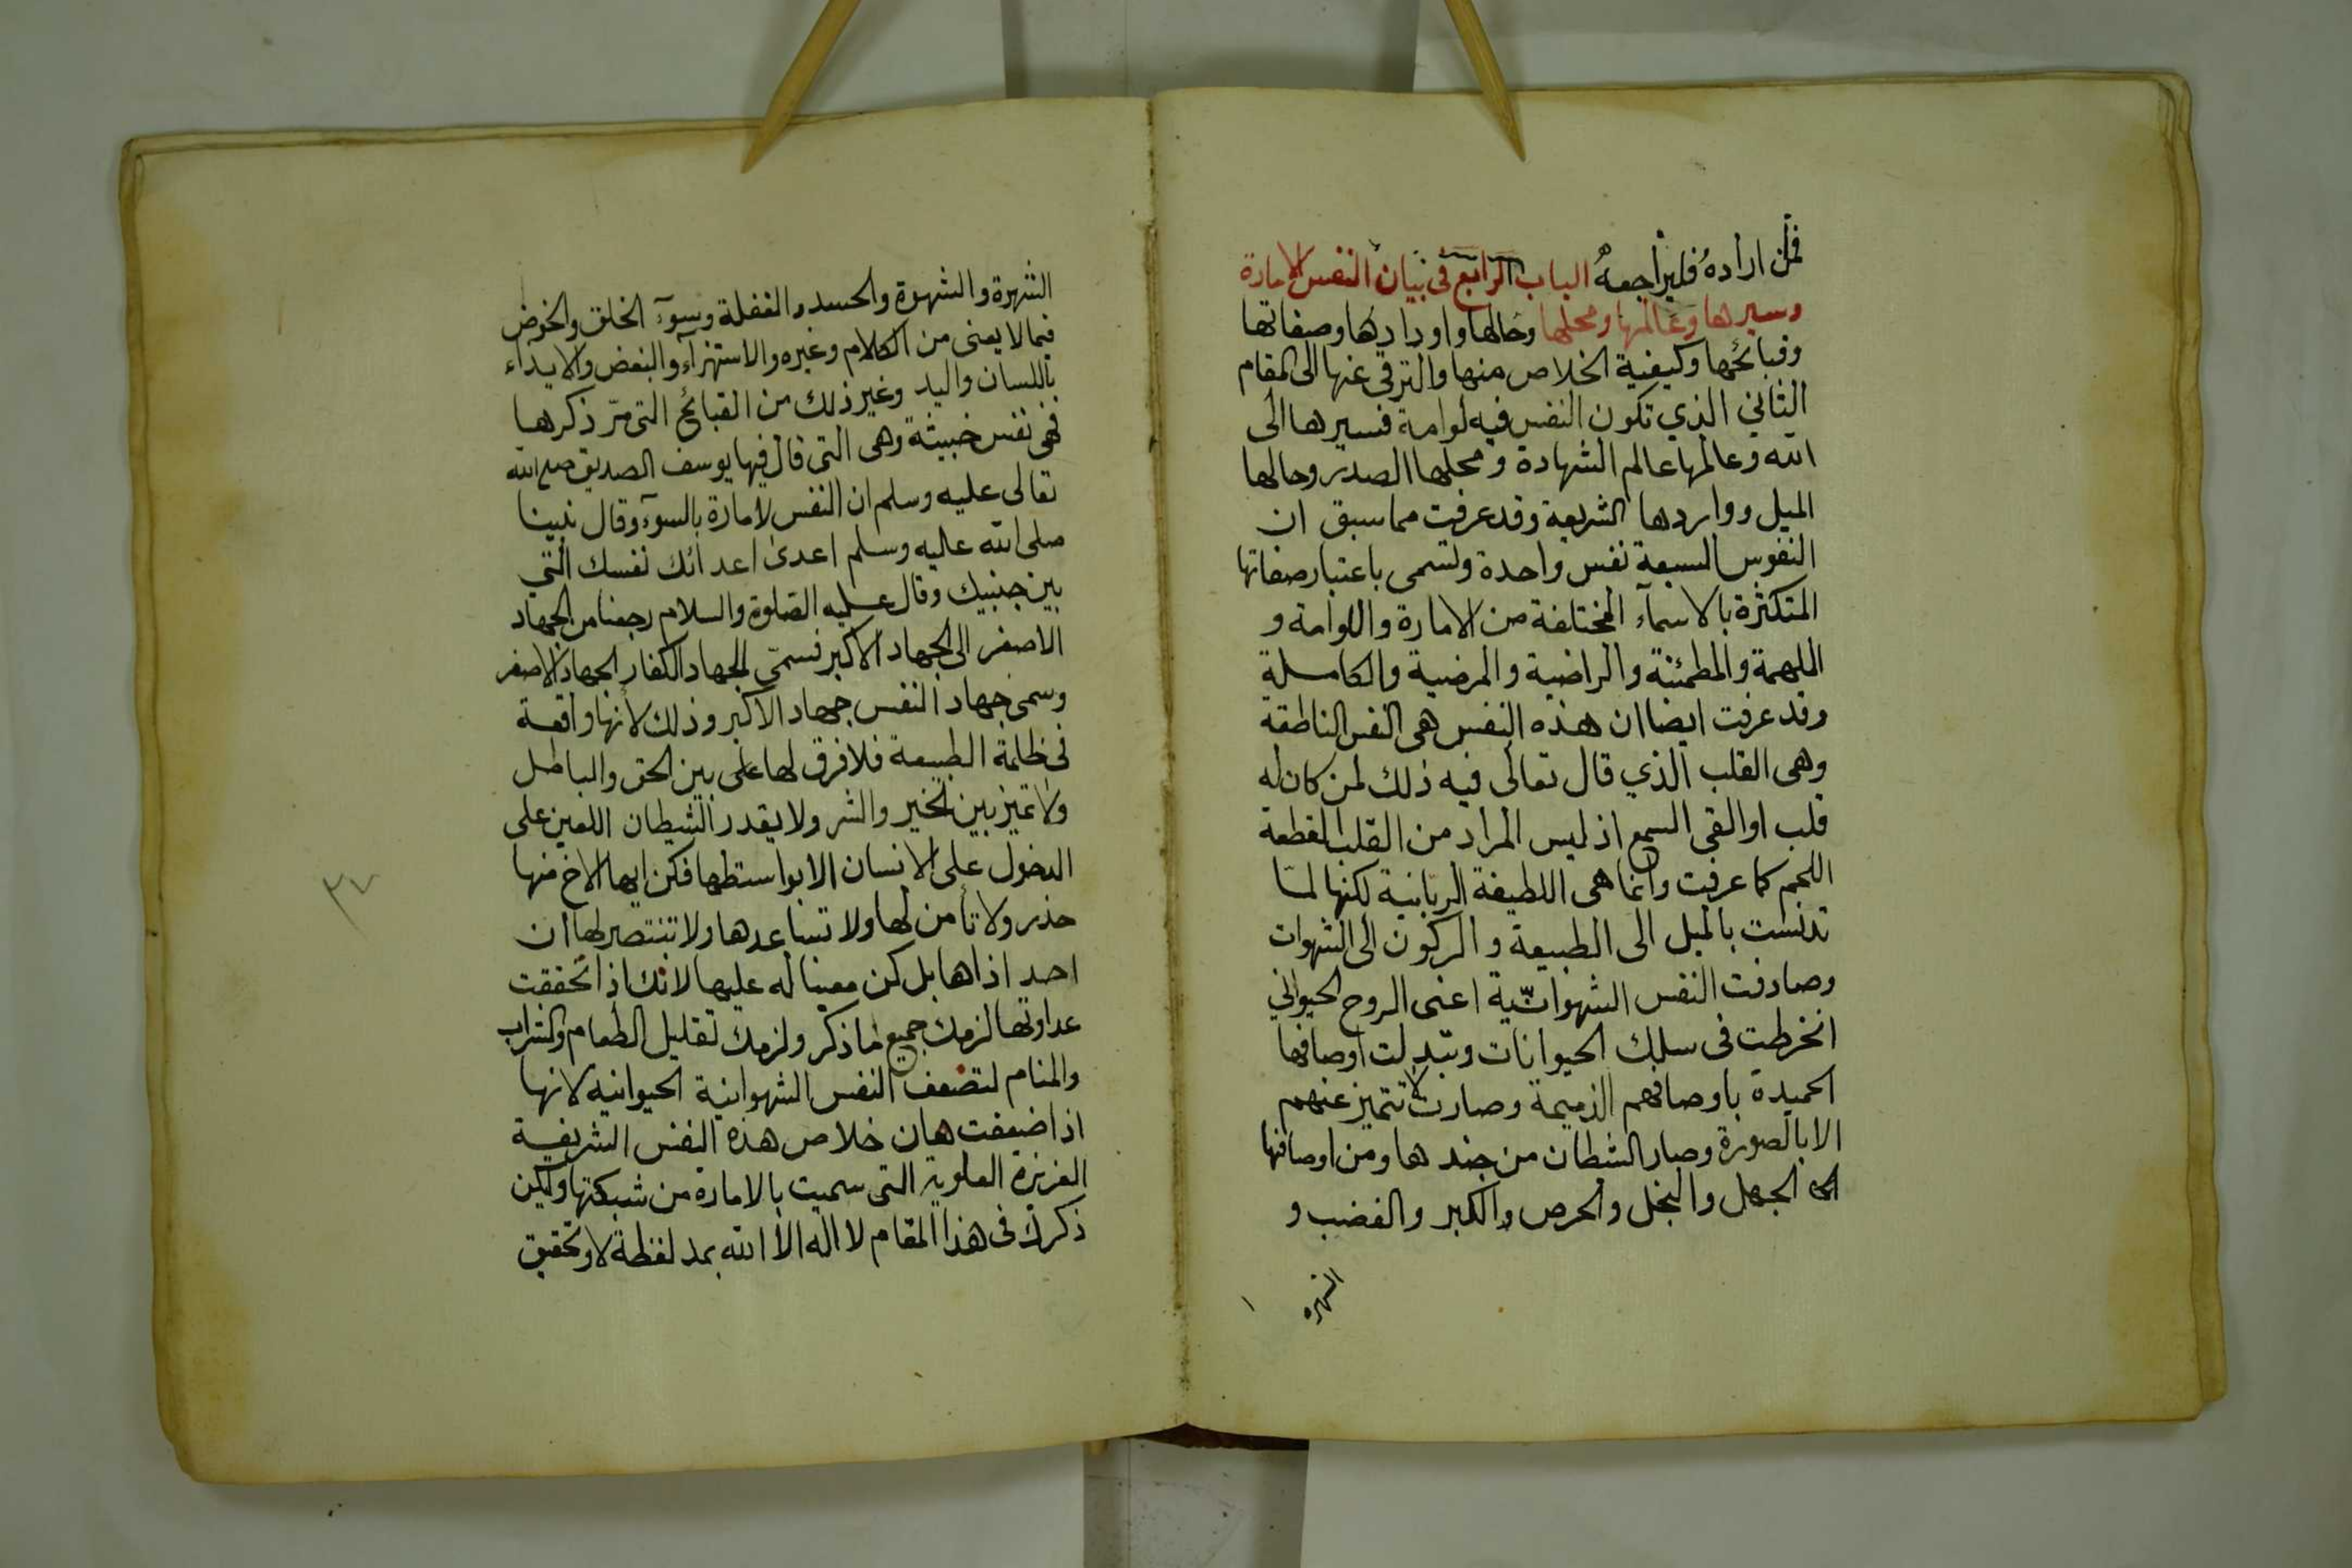 فمن اراده فليراجعه الباب الرابع في بيان النفس الامارة
وسيرها وعالمها ومحلها وحالها واورادها وصفاتها
وقبائحها وكيفية الخلاص منها والترقى عنها الى المقام
الثاني الذي تكون النفس فيه لوامة فسيرها الى
الله وعالمها عالم الشهادة ومحلها الصدر وحالها
الميل وواردها الشريعة وقد عرفت مما سبق ان
النفوس السبعة نفس واحدة وتسمى باعتبار صفاتها
المتكثرة بالاسمآء المختلفة من الامارة واللوامة و
الملهمة والمطمئنة والراضية والمرضية والكاملة
وقد عرفت ايضا ان هذه النفس هى النفس الناطقة
وهى القلب الذي قال تعالى فيه ذلك لمن كان له
قلب او القى السمع اذ ليس المراد من القلب القطعة
اللحم كما عرفت وانما هى اللطيفة الربانية لكنها لمّا
تدنست بالميل الى الطبيعة والركون الى الشهوات
وصادفت النفس الشهوانيّة اعنى الروح الحيواني
انخرطت فى سلك الحيوانات وتبدلت اوصافها
الحميدة باوصافهم الذميمة وصارت لا تتميز عنهم
الا بالصورة وصار الشطان من جندها ومن اوصافها
الجهل والبخل والحرص والكبر والغضب و
الشهره
الشهرة والشهوة والحسد والغفلة وسوٓء الخلق والخوض
فيما لا يعنى من الكلام وغيره والاستهزآء والبغض والايذآء
باللسان واليد وغير ذلك من القبائح التى مرّ ذكرها
فهى نفس خبيثة وهى التى قال فيها يوسف الصديق صلى الله
تعالى عليه وسلم ان النفس لامارة بالسوٓء وقال نبينا
صلى الله عليه وسلم اعدى اعدائك نفسك التي
بين جنبيك وقال عليه الصلوة والسلام رجعنا من الجهاد
الاصغر الى الجهاد الاكبر فسمّى الجهاد الكفار الجهاد الاصغر
وسمى جهاد النفس جهاد الاكبر وذلك لانها واقعة
فى ظلمة الطبيعة فلا فرق لها على بين الحق والباطل
ولا تميز بين الخير والشر ولا يقدر الشيطان اللعين على
الدخول على الانسان الا بواسطها فكن ايها الاخ منها
حذر ولا تأمن لها ولا تساعدها ولا تنتصر لها ان
احد اذاها بل كن معينا له عليها لانك اذا تحققت
عداوتها لزمك جميع ما ذكر ولزمك تقليل الطعام والشراب
والمنام لتضعف النفس الشهوانية الحيوانيه لانها
اذا ضعفت هان خلاص هذه النفس الشريفة
العزيزة العلوية التى سميت بالاماره من شبكتها وليكن
ذكرك فى هذا المقام لا اله الا الله بمد لفظة لا وتحقيق
٣٧